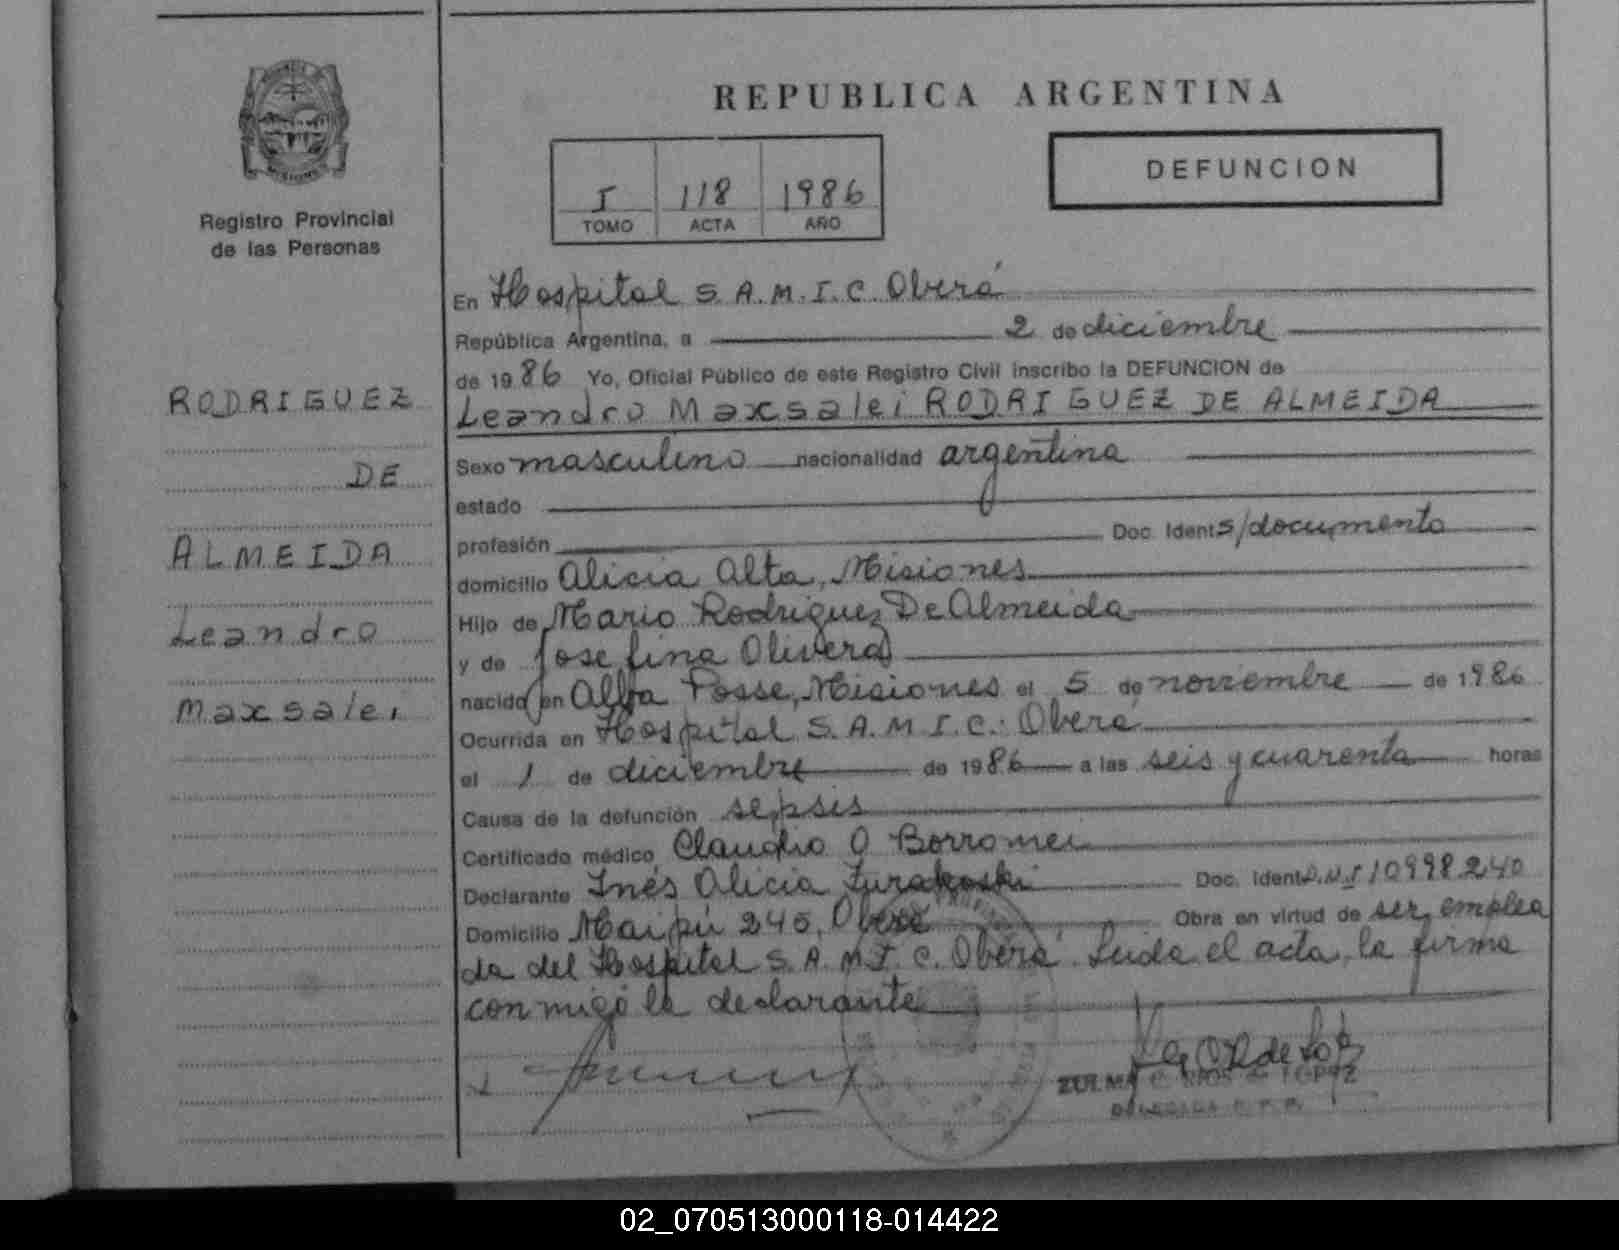 REPUBLICA ARGENTINA
DEFUNCION
I 118 1986
TOMO ACTA AÑO
Registro Provincial
de las Personas
RODRIGUEZ
DE
ALMEIDA
Leandro
Maxsalei
En Hospital S.A.M.I.C. Oberá
República Argentina, a 2 de diciembre
de 1986 Yo, Oficial Público de este Registro Civil inscribo la DEFUNCION de
Leandro Maxsalei RODRIGUEZ DE ALMEIDA
Sexo masculino nacionalidad argentina
estado
profesión Doc. Ident s/documento
domicilio Alicia Alta, Misiones
Hijo de Mario Rodriguez De Almeida
y de Josefina Olivera
nacido en Alba Posse, Misiones el 5 de noviembre de 1986
Ocurrida en Hospital S.A.M.I.C. Oberá
el 1 de diciembre de 1986 a las seis y cuarenta horas
Causa de la defunción sepsis
Certificado médico Claudio O Borromei
Declarante Inés Alicia Doc. Ident D.N.I 10998240
Domicilio Maipú 245, Oberá Obra en virtud de ser emplea
da del Hospital S.A.M.I.C. Oberá. Leida el acta, la firma
conmigo la declarante
ZULMA C. RIOS de LOPEZ
DELEGADA R.P.P.
02_070513000118-014422